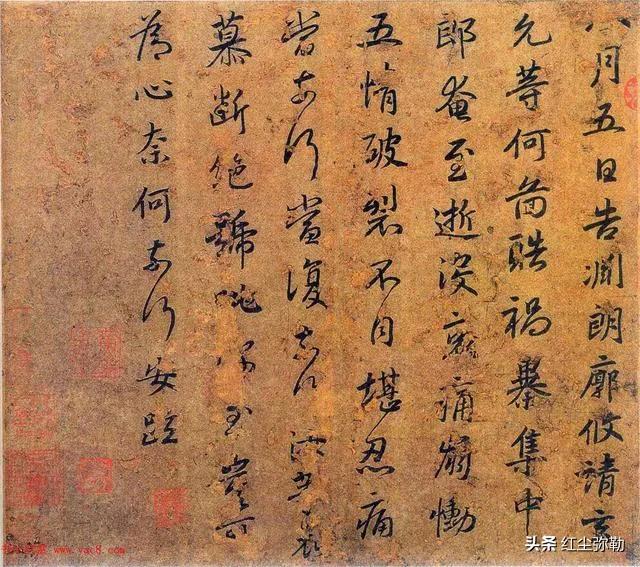 八月五日告淵朗廓攸靖玄
允等何圖酷禍暴集中
郎奄至逝没哀痛崩慟
五情破裂不自堪忍痛
當奈何當復奈何汝等哀
慕断絶號咷深至豈可
為心奈何奈何安疏
www.yac8.com
头条 红尘弥勒